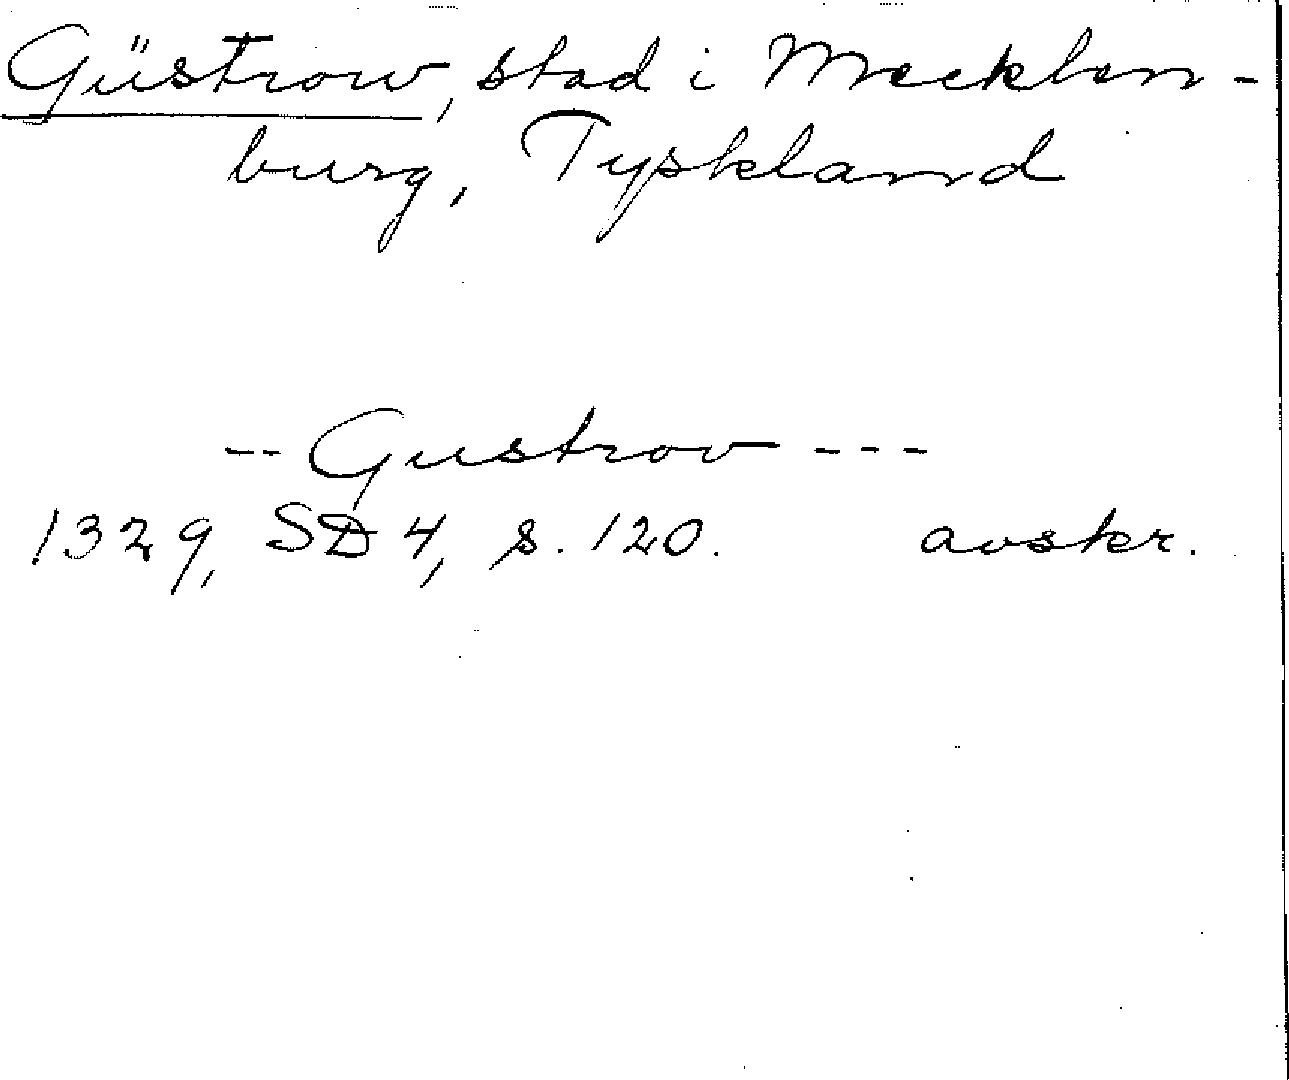 Güstrow, stad i Mecklen-
burg, Tyskland
-- Gustrov ---
1329, SD 4, s. 120. avskr.